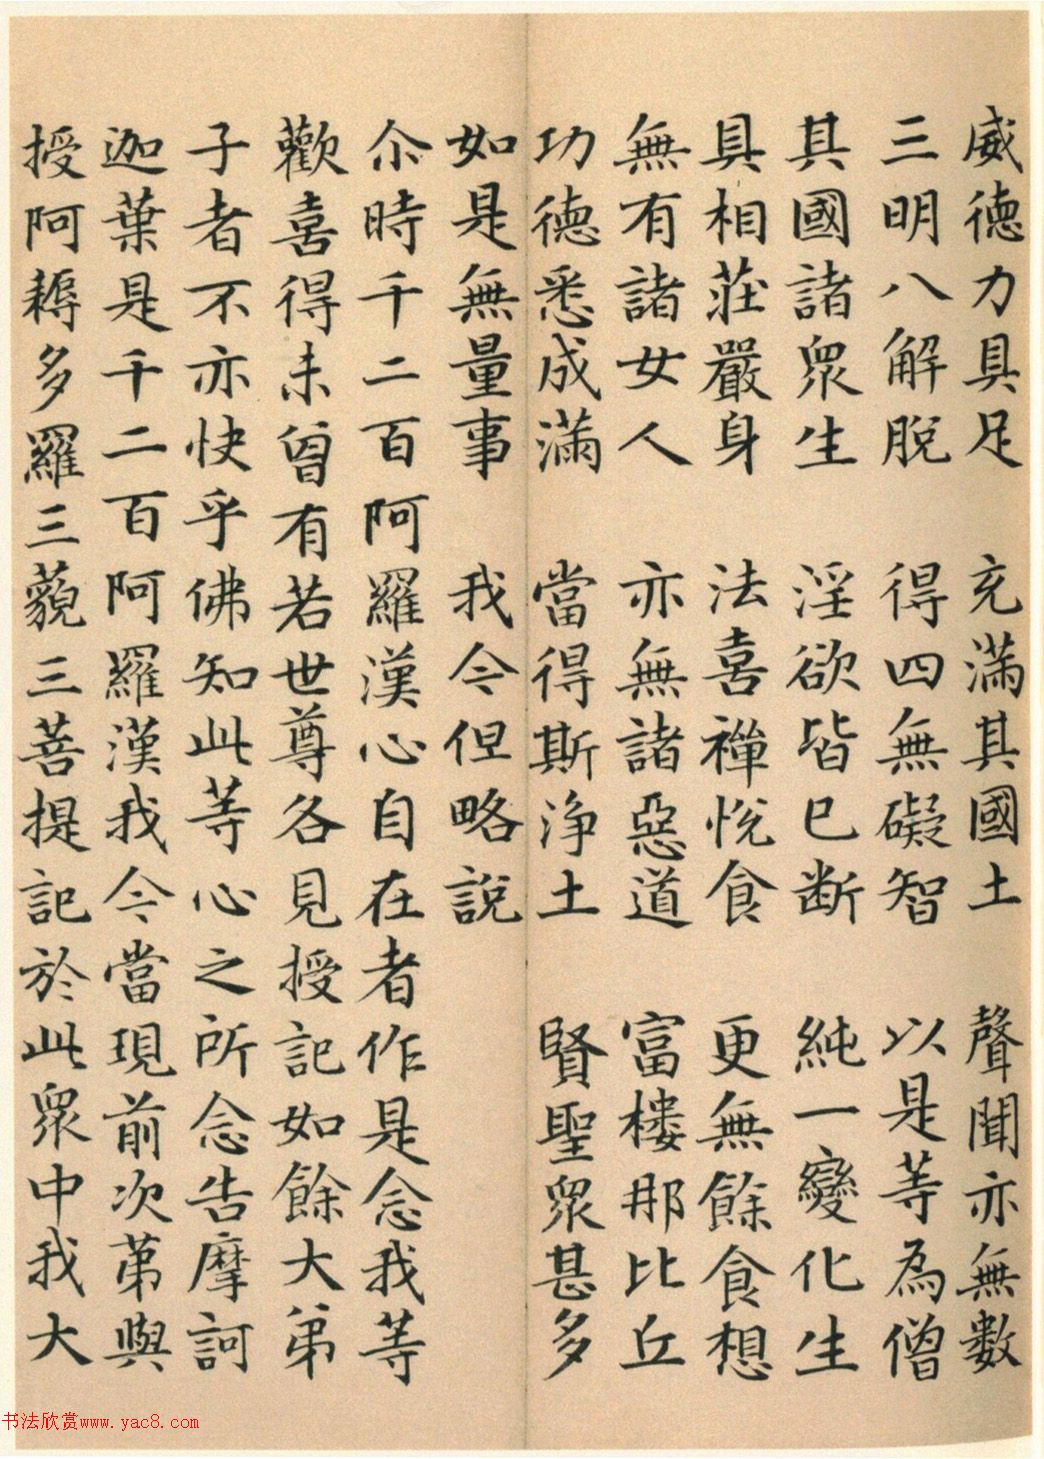 威德力具足 充滿其國土 聲聞亦無數
三明八解脫 得四無礙智 以是等為僧
其國諸眾生 淫欲皆已断 純一變化生
具相莊嚴身 法喜禪悅食 更無餘食想
無有諸女人 亦無諸惡道 富樓那比丘
功德悉成滿 當得斯净土 賢聖眾甚多
如是無量事 我今但略說
尒時千二百阿羅漢心自在者作是念我等
歡喜得未曾有若世尊各見授記如餘大弟
子者不亦快乎佛知此等心之所念告摩訶
迦葉是千二百阿羅漢我今當現前次第與
授阿耨多羅三藐三菩提記於此眾中我大
书法欣赏www.yac8.com